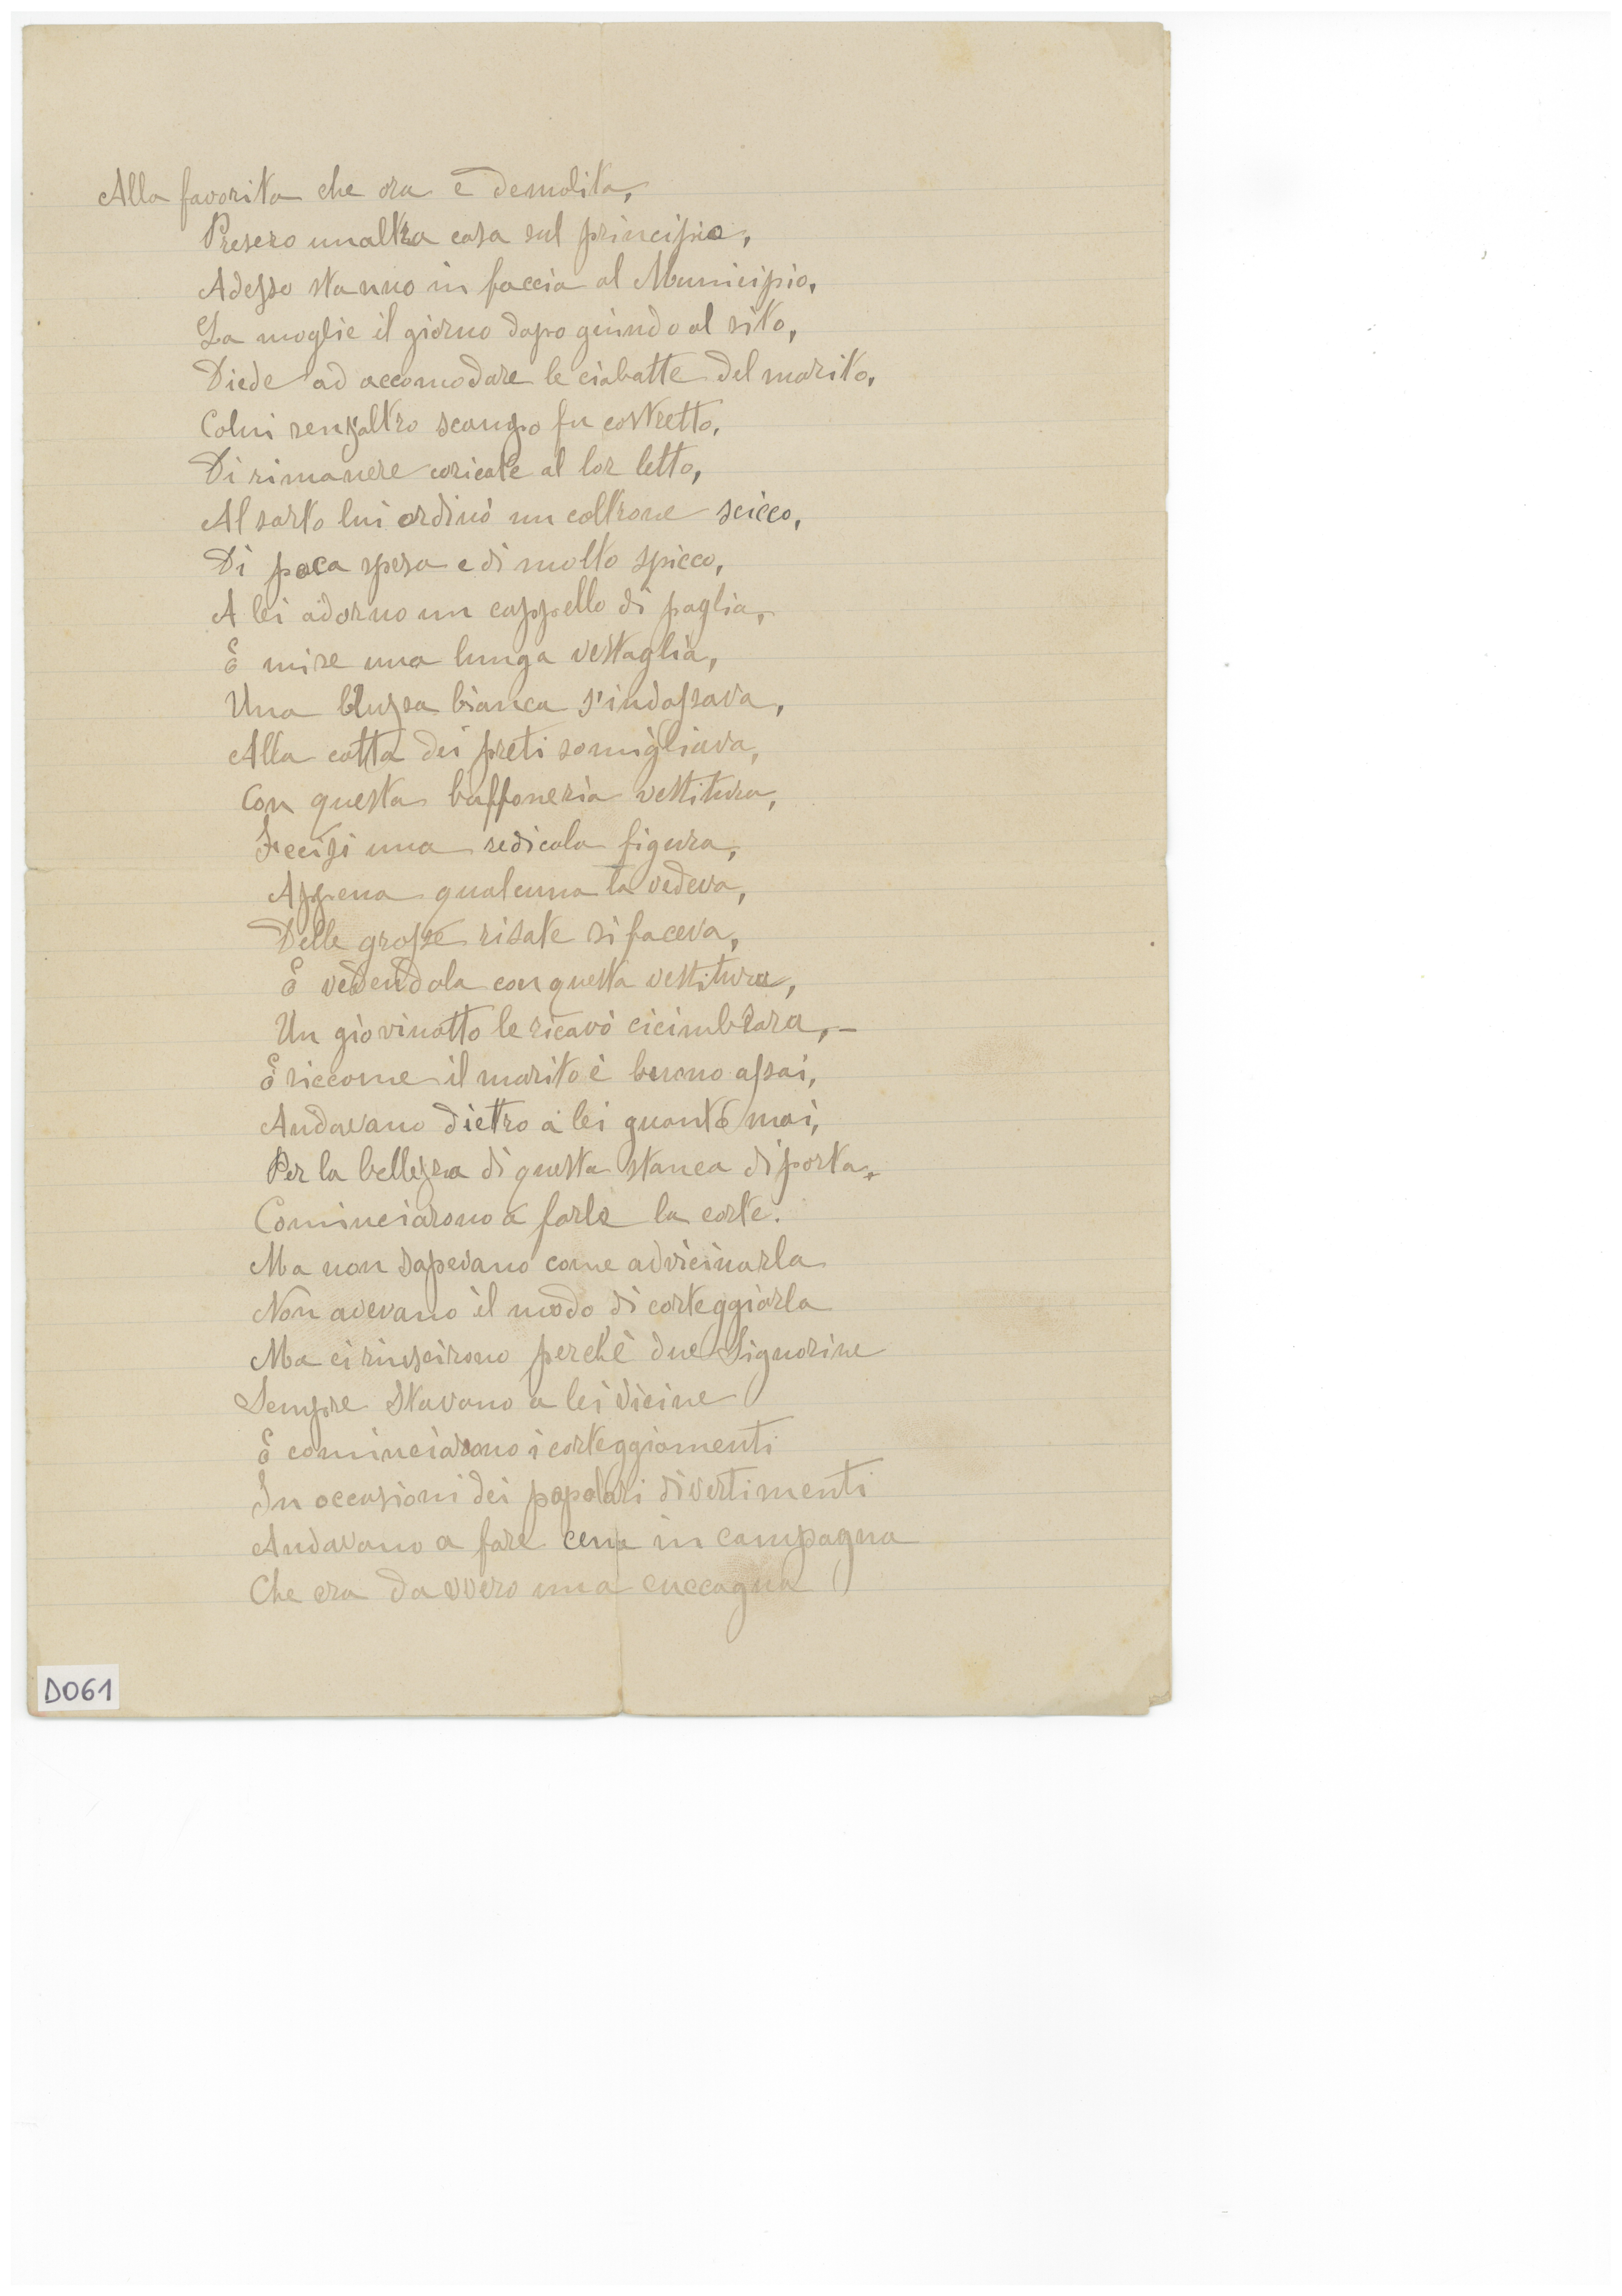 Alla favorita che ora è demolita,
Presero unaltra casa sul principio,
Adesso stanno in faccia al Municipio,
La moglie il giorno dopo quindo al sito,
Diede ad accomodare le ciabatte del marito,
Colui senzaltro scampo fu costretto,
Di rimanere coricate al lor letto,
Al sarto lui ordinò un coltrone scicco,
Di poca spesa e di molto spicco,
A lei adorno un cappello di paglia,
E mise una lunga vestaglia,
Una bluzsa bianca s'indossava,
Alla cotta dei preti somigliava,
Con questa buffoneria vestitura,
Fecesi una redicola figura,
Appena qualcuna la vedeva,
Delle grosse risate si faceva,
E vedendola con questa vestitura,
Un giovinotto le ricavò cicimbrara, –
E siccome il marito è buono assai,
Andavano dietro a lei quanto mai,
Per la bellezza di questa stanca di porta,
Cominciarono a farle la corte.
Ma non sapevano come advicinarla
Non avevano il modo di corteggiarla
Ma ci riuscirono perchè due Signorine
Sempre stavano a lei vicine
E cominciarono i corteggiamenti
In occasioni dei popolari divertimenti
Andavano a fare cena in campagna
Che era davvero una cuccagna
D061